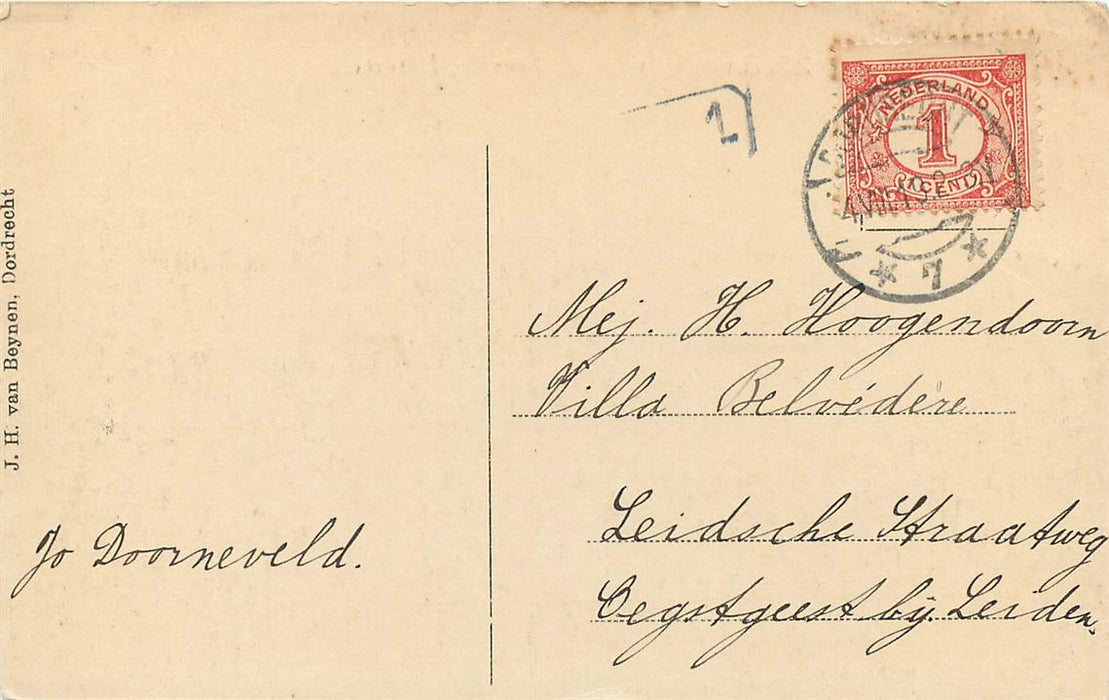 J. H. van Beynen, Dordrecht
1
NEDERLAND
1
CENT
Mej. H. Hoogendoorn
Villa Belvédère
Leidsche Straatweg
Oegstgeest bij Leiden.
Jo Doorneveld.